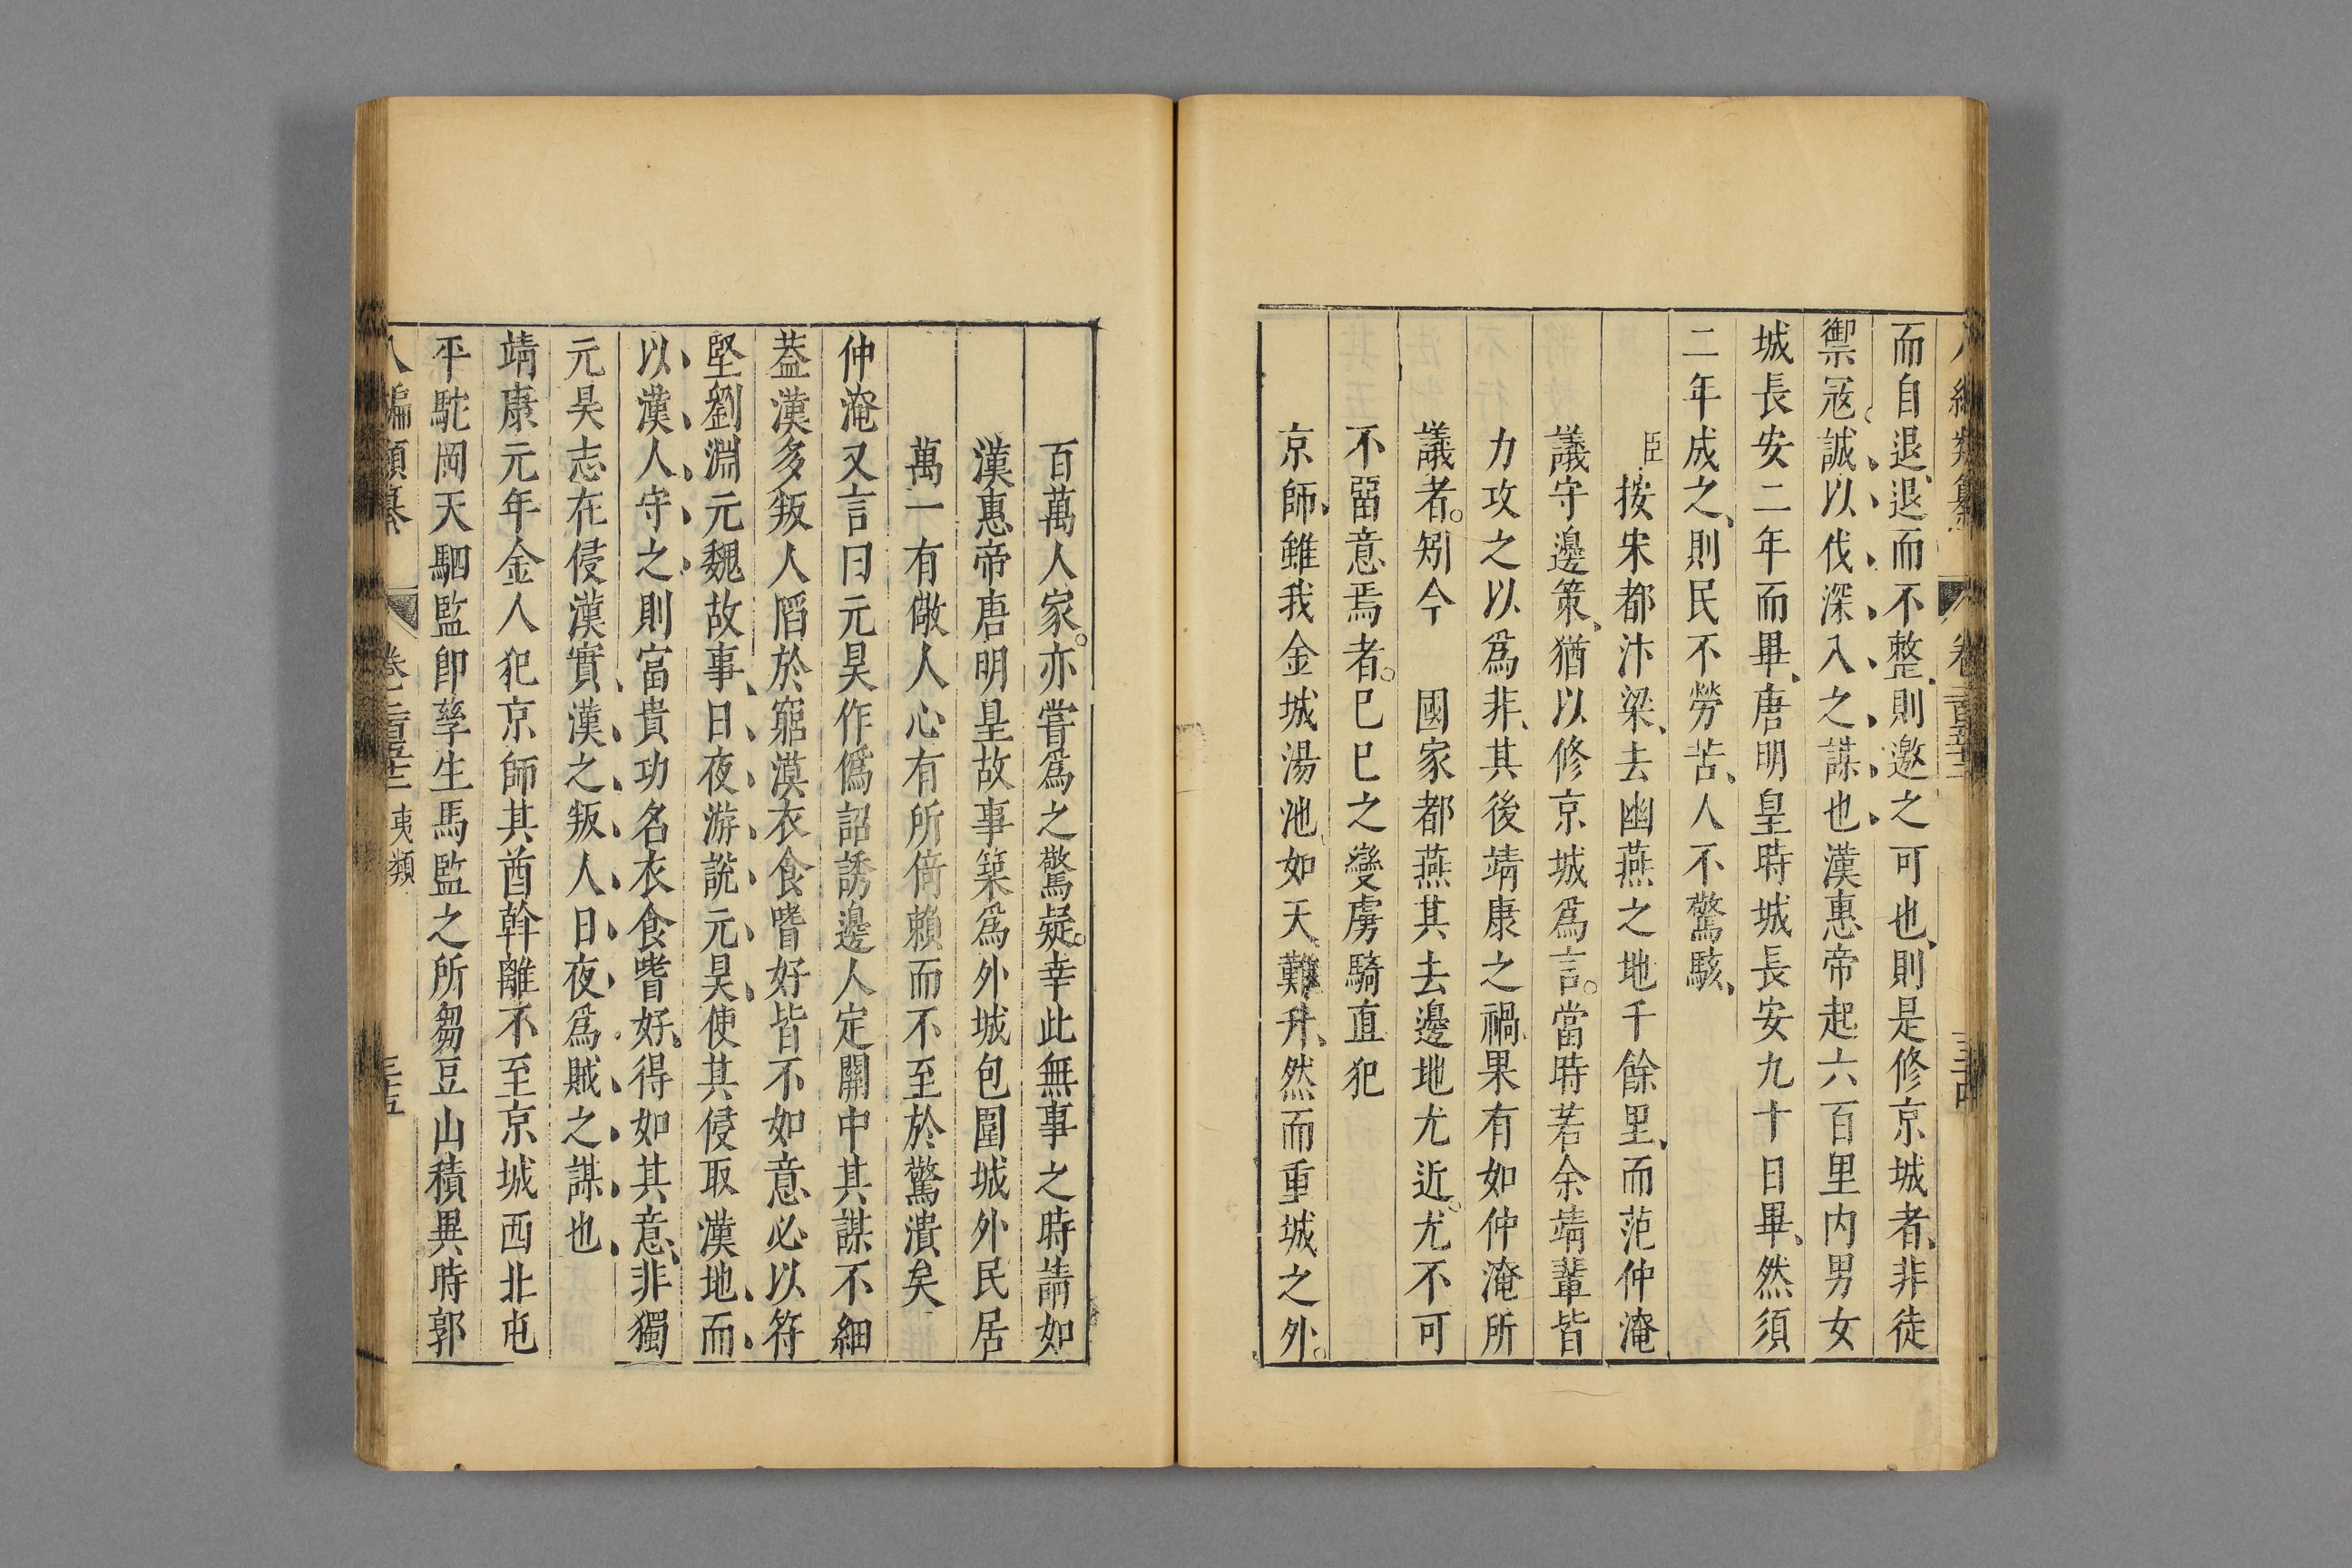 而自退退而不整則邀之可也則是修京城者非徒
禦冦誠以伐深入之謀也漢惠帝起六百里内男女
城長安二年而畢唐明皇時城長安九十日畢然須
二年成之則民不勞苦人不驚駭
臣按宋都汴梁去幽燕之地千餘里而范仲淹
議守邊策猶以修京城為言當時若余靖輩皆
力攻之以為非其後靖康之禍果有如仲淹所
議者矧今　國家都燕其去邊地尤近尤不可
不畱意焉者巳巳之變虜騎直犯
京師雖我金城湯池如天難升然而重城之外
百萬人家亦嘗為之驚疑幸此無事之時請如
漢惠帝唐明皇故事築為外城包圍城外民居
萬一有儆人心有所倚賴而不至於驚潰矣
仲淹又言曰元昊作僞詔誘邊人定關中其謀不細
葢漢多叛人陷於窮漠衣食嗜好皆不如意必以符
堅劉淵元魏故事日夜游說元昊使其侵取漢地而
以漢人守之則富貴功名衣食嗜好得如其意非獨
元昊志在侵漢實漢之叛人日夜為賊之謀也
靖康元年金人犯京師其酋斡離不至京城西北屯
牟駝岡天駟監卽孳生馬監之所芻豆山積異時郭
八編類纂　卷二百五十二　夷類　三十五